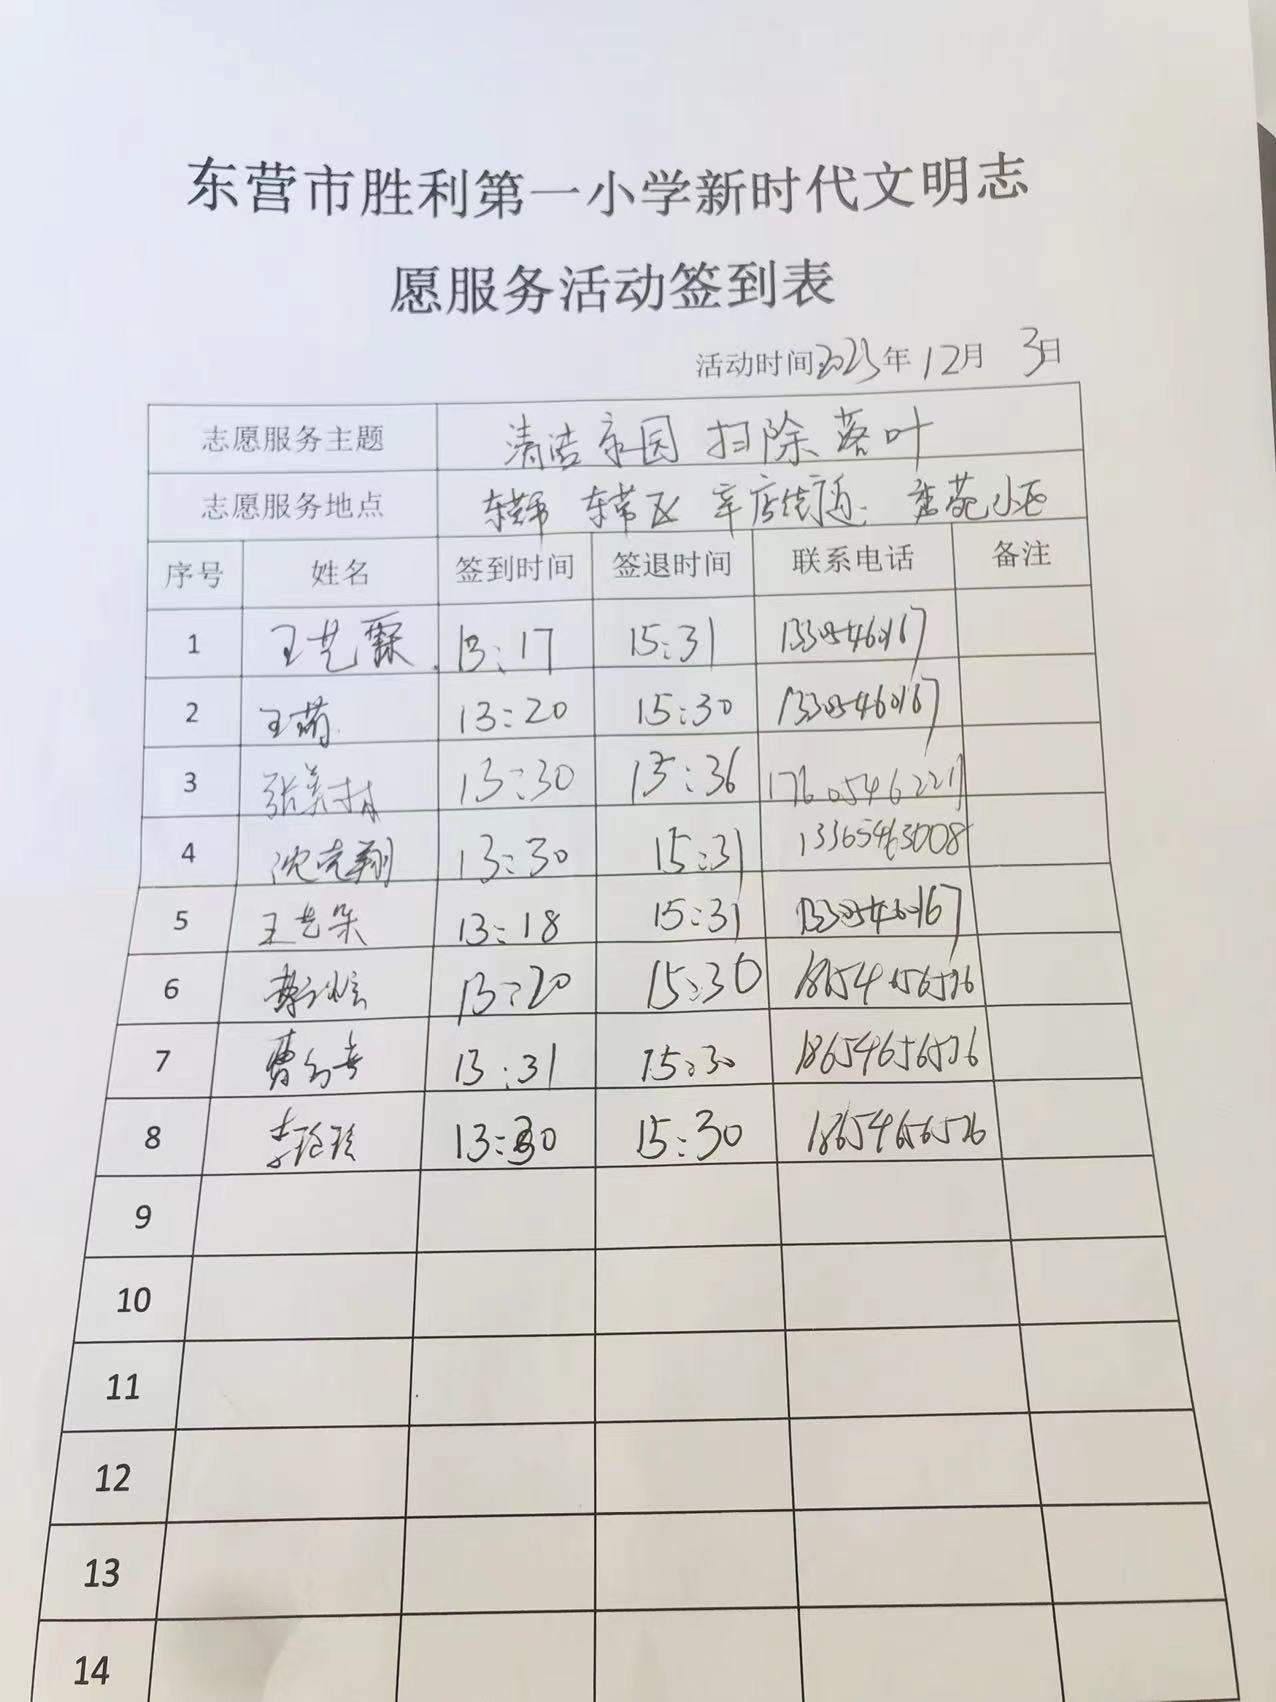 东营市胜利第一小学新时代文明志
愿服务活动签到表
活动时间2023年12月3日
志愿服务主题 清洁家园 扫除落叶
志愿服务地点 东营市 东营区 辛店街道 小区
序号 姓名 签到时间 签退时间 联系电话 备注
1 王艺霖 13:17 15:31 13305460167
2 王萌 13:20 15:30 13305460167
3 张 13:30 15:36 17605462217
4 沈克翔 13:30 15:31 13365463008
5 王艺朵 13:18 15:31 13305460167
6 13:20 15:30 18654656526
7 曹 13:31 15:30 18654656526
8 李 13:30 15:30 18654656526
9
10
11
12
13
14